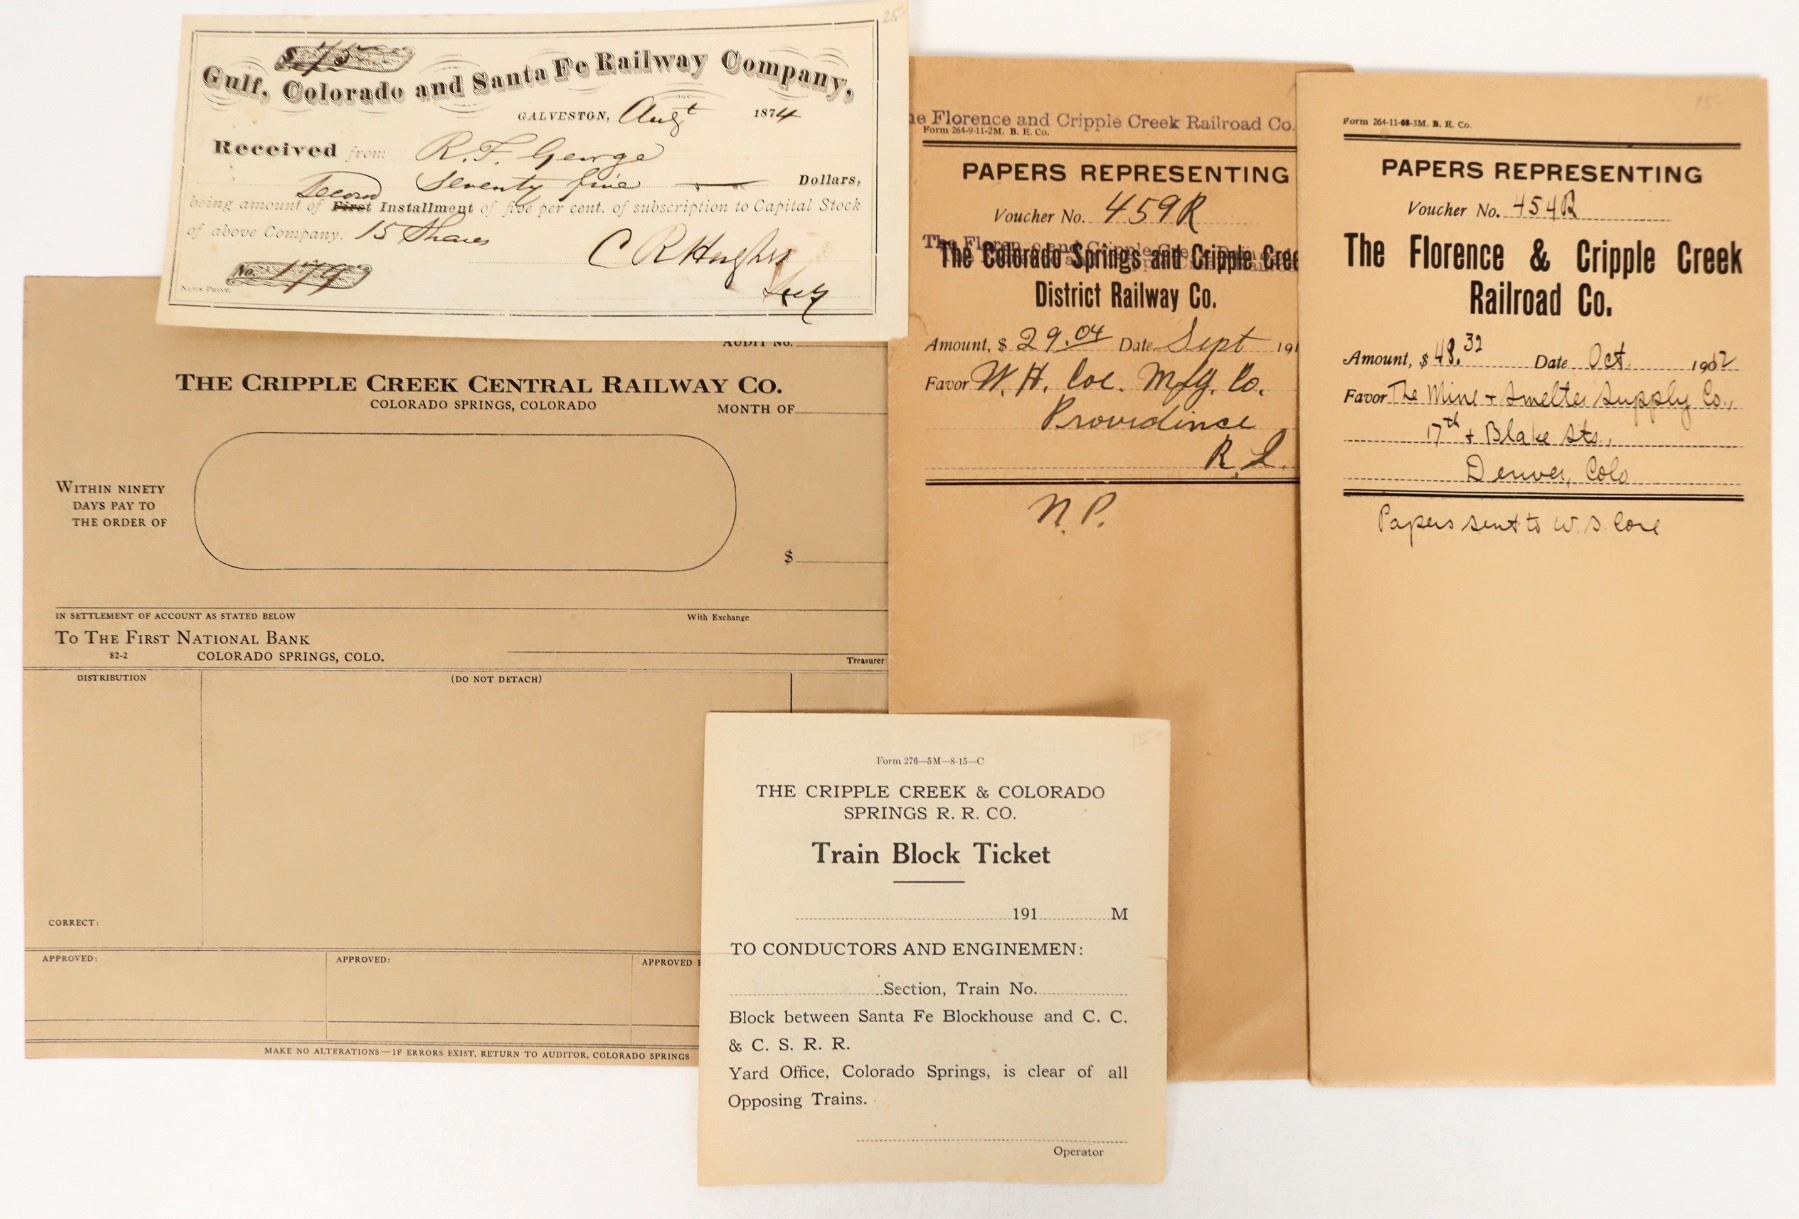 25-
$ 75
Gulf, Colorado and Santa Fe Railway Company,
GALVESTON, Augt 1874
Received from R. F. George
Seventy five Dollars,
being amount of First Second Installment of five per cent. of subscription to Capital Stock
of above Company. 15 Shares
C R Hughes
No. 179
Secy
NEWS PRINT.
AUDIT NO.
THE CRIPPLE CREEK CENTRAL RAILWAY CO.
COLORADO SPRINGS, COLORADO
MONTH OF
WITHIN NINETY
DAYS PAY TO
THE ORDER OF
$
IN SETTLEMENT OF ACCOUNT AS STATED BELOW
With Exchange
TO THE FIRST NATIONAL BANK
82-2 COLORADO SPRINGS, COLO.
Treasurer
DISTRIBUTION
(DO NOT DETACH)
CORRECT:
APPROVED:
APPROVED:
APPROVED
MAKE NO ALTERATIONS—IF ERRORS EXIST, RETURN TO AUDITOR, COLORADO SPRINGS
he Florence and Cripple Creek Railroad Co.
Form 264-9-11-2M. B. E. Co.
PAPERS REPRESENTING
Voucher No. 459R
The Colorado Springs and Cripple Cree
District Railway Co.
Amount, $ 29.04 Date Sept 191
Favor W. H. Coe. Mfg. Co.
Providince
R. I.
N. P.
15-
Form 264-11-08-3M. B. E. Co.
PAPERS REPRESENTING
Voucher No. 454R
The Florence & Cripple Creek
Railroad Co.
Amount, $ 48.32 Date Oct. 1912
Favor The Mine & Smelter Supply Co.,
17th & Blake Sts.,
Denver, Colo
Papers sent to W. S.
15-
Form 276—5M—8-15—C
THE CRIPPLE CREEK & COLORADO
SPRINGS R. R. CO.
Train Block Ticket
191 M
TO CONDUCTORS AND ENGINEMEN:
Section, Train No.
Block between Santa Fe Blockhouse and C. C.
& C. S. R. R.
Yard Office, Colorado Springs, is clear of all
Opposing Trains.
Operator